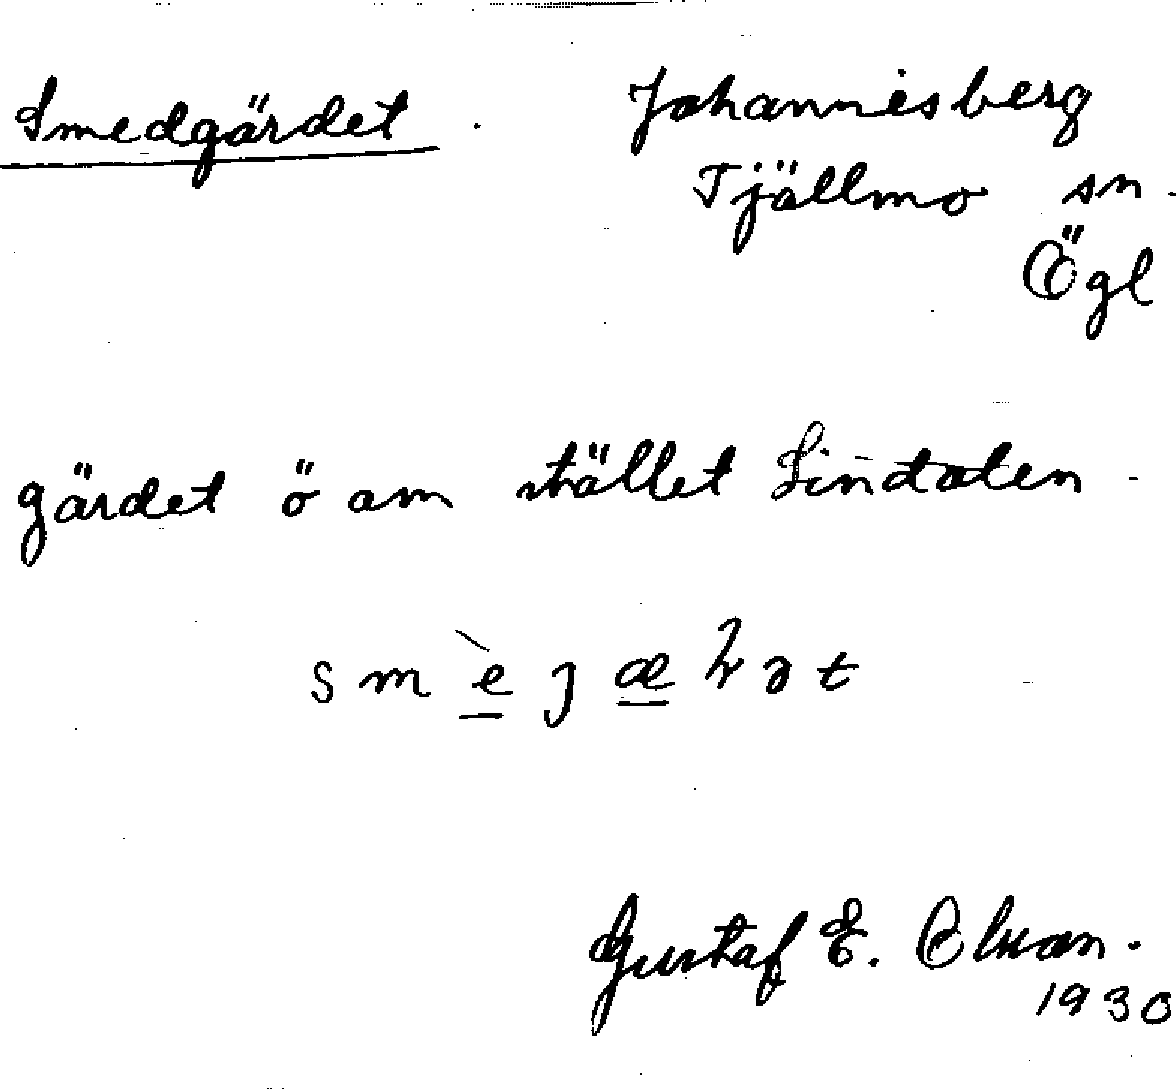 Smedgärdet. Johannesberg
Tjällmo sn.
Ögl
gärdet ö om stället Lindalen.
Gustaf E. Olson.
1930